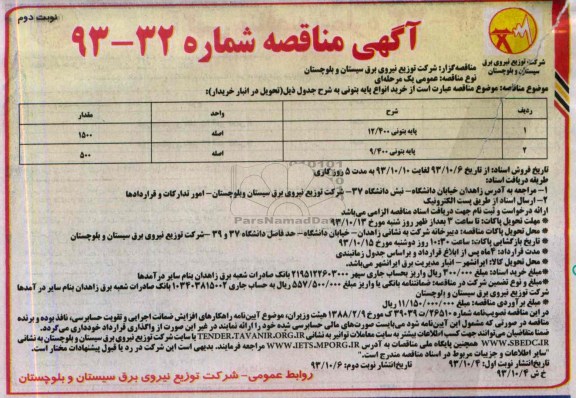 نوبت دوم
آگهی مناقصه شماره ۳۲-۹۳
شرکت توزیع نیروی برق
سیستان و بلوچستان
مناقصه‌گزار: شرکت توزیع نیروی برق سیستان و بلوچستان
نوع مناقصه: عمومی یک مرحله‌ای
موضوع مناقصه: موضوع مناقصه عبارت است از خرید انواع پایه بتونی به شرح جدول ذیل(تحویل در انبار خریدار):
ردیف شرح واحد مقدار
۱ پایه بتونی ۱۲/۴۰۰ اصله ۱۵۰۰
۲ پایه بتونی ۹/۴۰۰ اصله ۵۰۰
تاریخ فروش اسناد: از تاریخ ۹۳/۱۰/۶ لغایت ۹۳/۱۰/۱۰ به مدت ۵ روز کاری
طریقه دریافت اسناد:
۱- مراجعه به آدرس زاهدان خیابان دانشگاه- نبش دانشگاه ۳۷- شرکت توزیع نیروی برق سیستان وبلوچستان- امور تدارکات و قراردادها
۲- ارسال اسناد از طریق پست الکترونیک
ارائه درخواست و ثبت نام جهت دریافت اسناد مناقصه الزامی می‌باشد
* مهلت تحویل پاکات: تا ساعت ۳ بعداز ظهر روز شنبه مورخ ۹۳/۱۰/۱۳
* محل تحویل پاکات مناقصه: دبیرخانه شرکت به نشانی زاهدان- خیابان دانشگاه- حد فاصل دانشگاه ۳۷ و ۳۹ -شرکت توزیع نیروی برق سیستان و بلوچستان
* تاریخ بازگشایی پاکات: ساعت ۱۰:۳۰ روز دوشنبه مورخ ۹۳/۱۰/۱۵
* مدت قرارداد: ۴ماه پس از ابلاغ قرارداد و براساس جدول زمانبندی
* محل تحویل کالا: ایرانشهر - انبار مدیریت برق ایرانشهر می‌باشد.
*مبلغ خرید اسناد: مبلغ ۳۰۰/۰۰۰ ریال واریز بحساب جاری سپهر ۲۱۹۵۱۲۲۶۰۳۰۰۰ بانک صادرات شعبه برق زاهدان بنام سایر درآمدها
*مبلغ و نوع تضمین شرکت در مناقصه: ضمانتنامه بانکی یا واریز مبلغ ۵۵۷/۵۰۰/۰۰۰ ریال به حساب جاری ۱۰۳۴۰۳۸۱۵۰۰۲ بانک صادرات شعبه برق زاهدان بنام سایر در آمدها
شرکت توزیع نیروی برق سیستان و بلوچستان
* مبلغ برآوردی مناقصه: مبلغ ۱۱/۱۵۰/۰۰۰/۰۰۰ ریال
در این مناقصه تصویب‌نامه شماره ۲۶۵۱۰/ت ۳۹۰۳۹ ک مورخ ۱۳۸۸/۲/۹ هیئت وزیران، موضوع آیین‌نامه راهکارهای افزایش ضمانت اجرایی و تقویت حسابرسی، نافذ بوده و برنده
مناقصه در صورتی که مشمول این آیین‌نامه شود می‌بایست صورت‌های مالی حسابرسی شده خود را ارائه نمایند در غیر این صورت از واگذاری قرارداد خودداری می‌گردد.
ضمنا متقاضیان می‌توانند جهت کسب اطلاعات بیشتر به سایت معاملات توانیر به نشانی TENDER.TAVANIR.ORG.IR یا سایت شرکت توزیع نیروی برق سیستان و بلوچستان به نشانی
WWW.SBEDC.IR همچنین پایگاه ملی مناقصات به آدرس WWW.IETS.MPORG.IR مراجعه فرمایند. بدیهی است این شرکت در رد یا قبول پیشنهادات مختار است.
"سایر اطلاعات و جزییات مربوط در اسناد مناقصه مندرج است."
تاریخ انتشار نوبت اول: ۹۳/۱۰/۴ تاریخ انتشار نوبت دوم: ۹۳/۱۰/۶
خ ش ۹۳/۱۰/۴
روابط عمومی- شرکت توزیع نیروی برق سیستان و بلوچستان